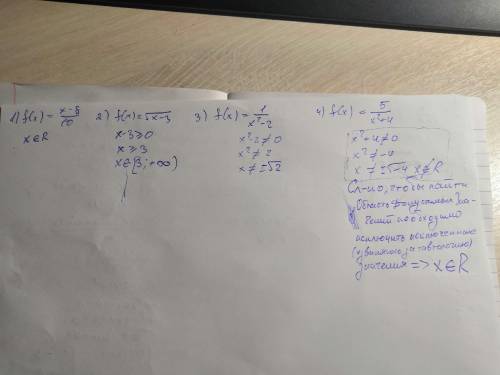 1) f(x) = (x-8)/10
x∈R
2) f(x) = √x-3
x-3≥0
x≥3
x∈[3;+∞)
3) f(x) = 1/(x²-2)
x²-2≠0
x²≠2
x≠±√2
4) f(x) = 5/(x²+4)
x²+4≠0
x²≠-4
x≠±√-4 x∉R
Сл-но, чтобы найти
область допустимых зна-
чений необходимо
исключить исключенные
(извиняюсь за тавтологию)
значения => x∈R